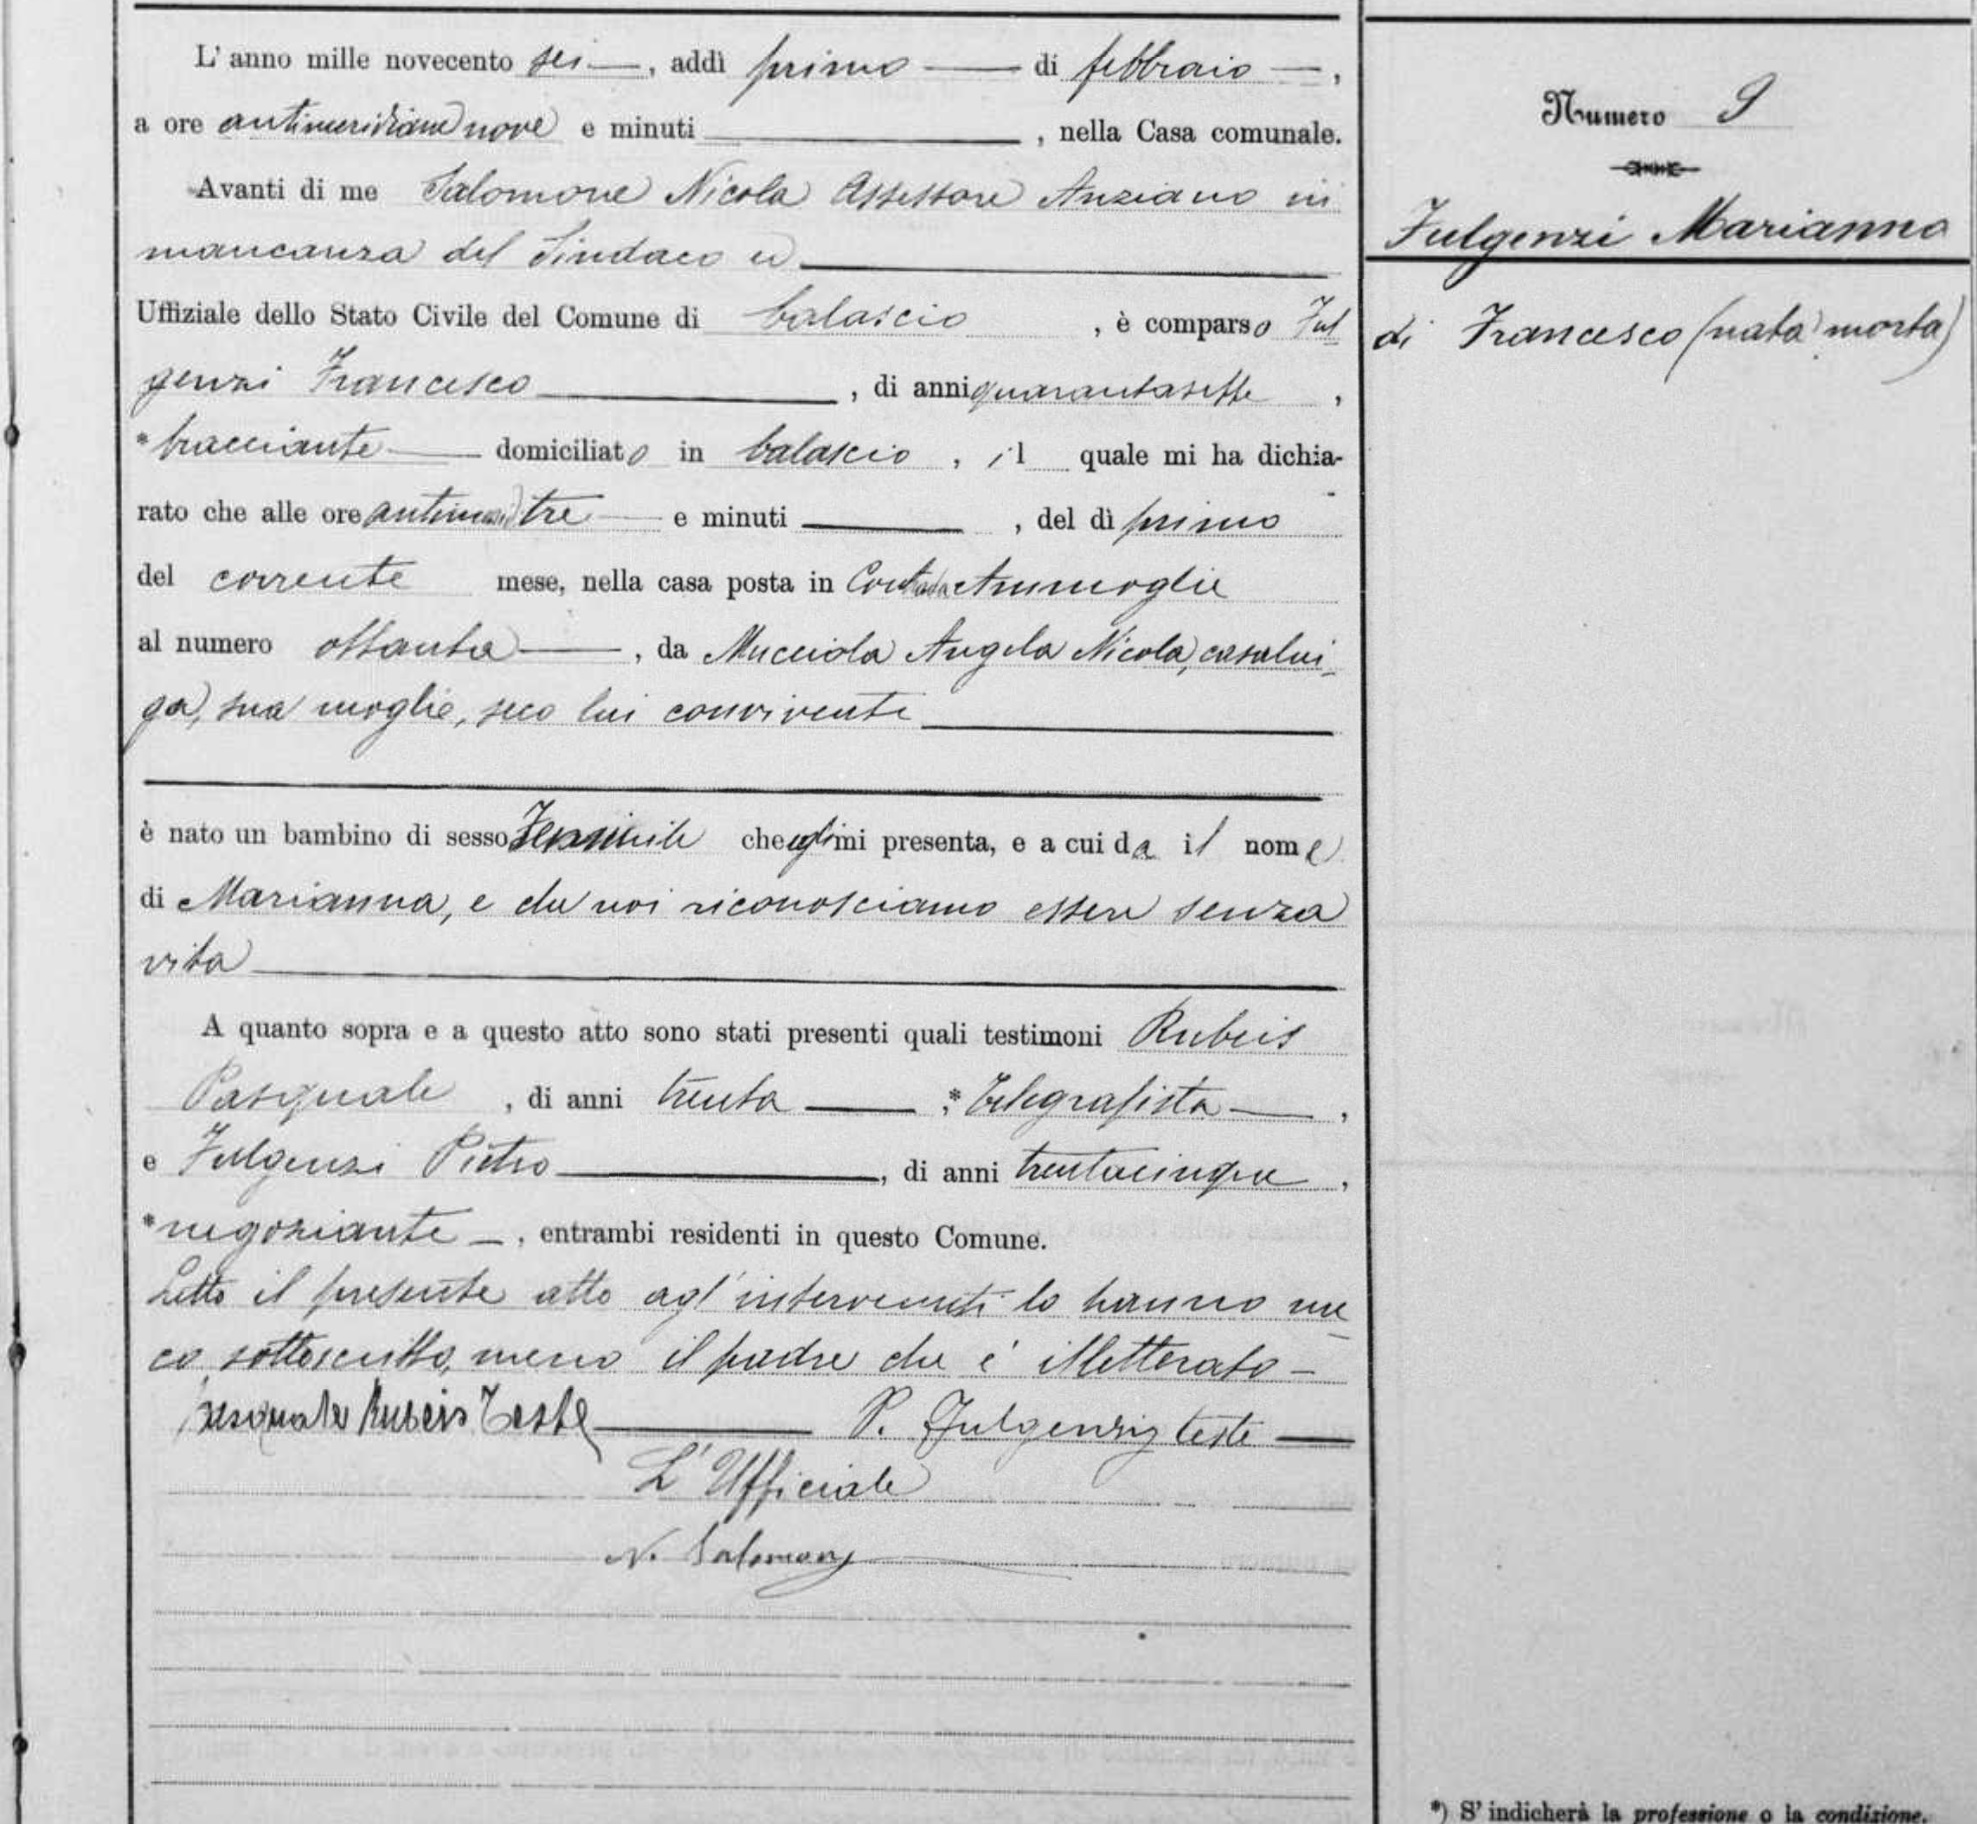 L'anno mille novecento sei —, addì primo — di febbraio —,
a ore antimeridiane nove e minuti ———, nella Casa comunale.
Avanti di me Salomone Nicola Assessore Anziano in
mancanza del Sindaco ed ———
Uffiziale dello Stato Civile del Comune di Calascio, è comparso Ful
genzi Francesco ———, di anni quarantasette,
*bracciante — domiciliato in Calascio, il quale mi ha dichia-
rato che alle ore antimerid tre — e minuti ———, del dì primo
del corrente mese, nella casa posta in Contrada
al numero ottanta —, da Mucciola Angela Nicola, casalin-
ga, sua moglie, seco lui convivente ———
è nato un bambino di sesso Feminile che egli mi presenta, e a cui da il nome
di Marianna, e che noi riconosciamo essere senza
vita ———
A quanto sopra e a questo atto sono stati presenti quali testimoni Rubeis
Pasquale, di anni trenta —, *telegrafista —,
e Fulgenzi Pietro ———, di anni trentacinque,
*negoziante —, entrambi residenti in questo Comune.
Letto il presente atto agl'intervenuti lo hanno me
co sottoscritto, meno il padre che è illetterato —
Pasquale Rubeis Teste — P. Fulgenzij teste —
L'Ufficiale
N. Salomone
Numero 9
Fulgenzi Marianna
di Francesco (nata morta)
*) S'indicherà la professione o la condizione.